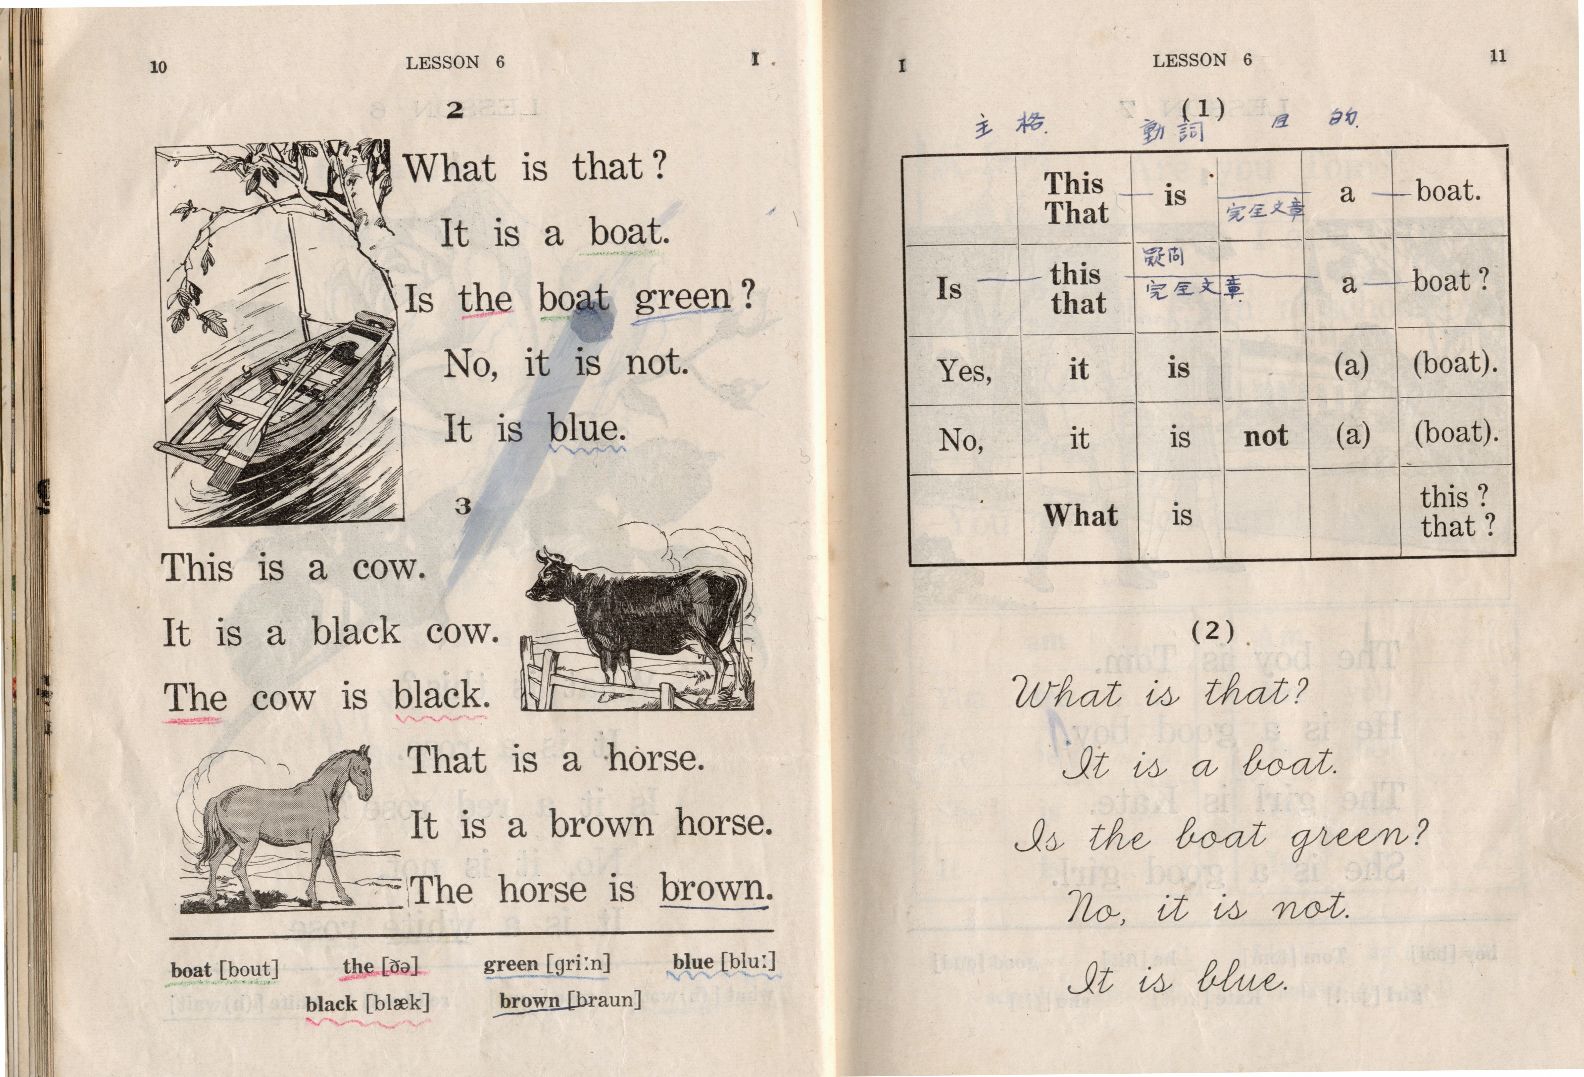 10 LESSON 6 I
2
What is that?
It is a boat.
Is the boat green?
No, it is not.
It is blue.
3
This is a cow.
It is a black cow.
The cow is black.
That is a horse.
It is a brown horse.
The horse is brown.
boat [bout] the [ðə] green [gri:n] blue [blu:]
black [blæk] brown [braun]
I LESSON 6 11
(1)
主格 動詞 目的
This
That is a boat.
完全文章
疑問
Is this
that a boat?
完全文章
Yes, it is (a) (boat).
No, it is not (a) (boat).
What is this?
that?
(2)
What is that?
It is a boat.
Is the boat green?
No, it is not.
It is blue.